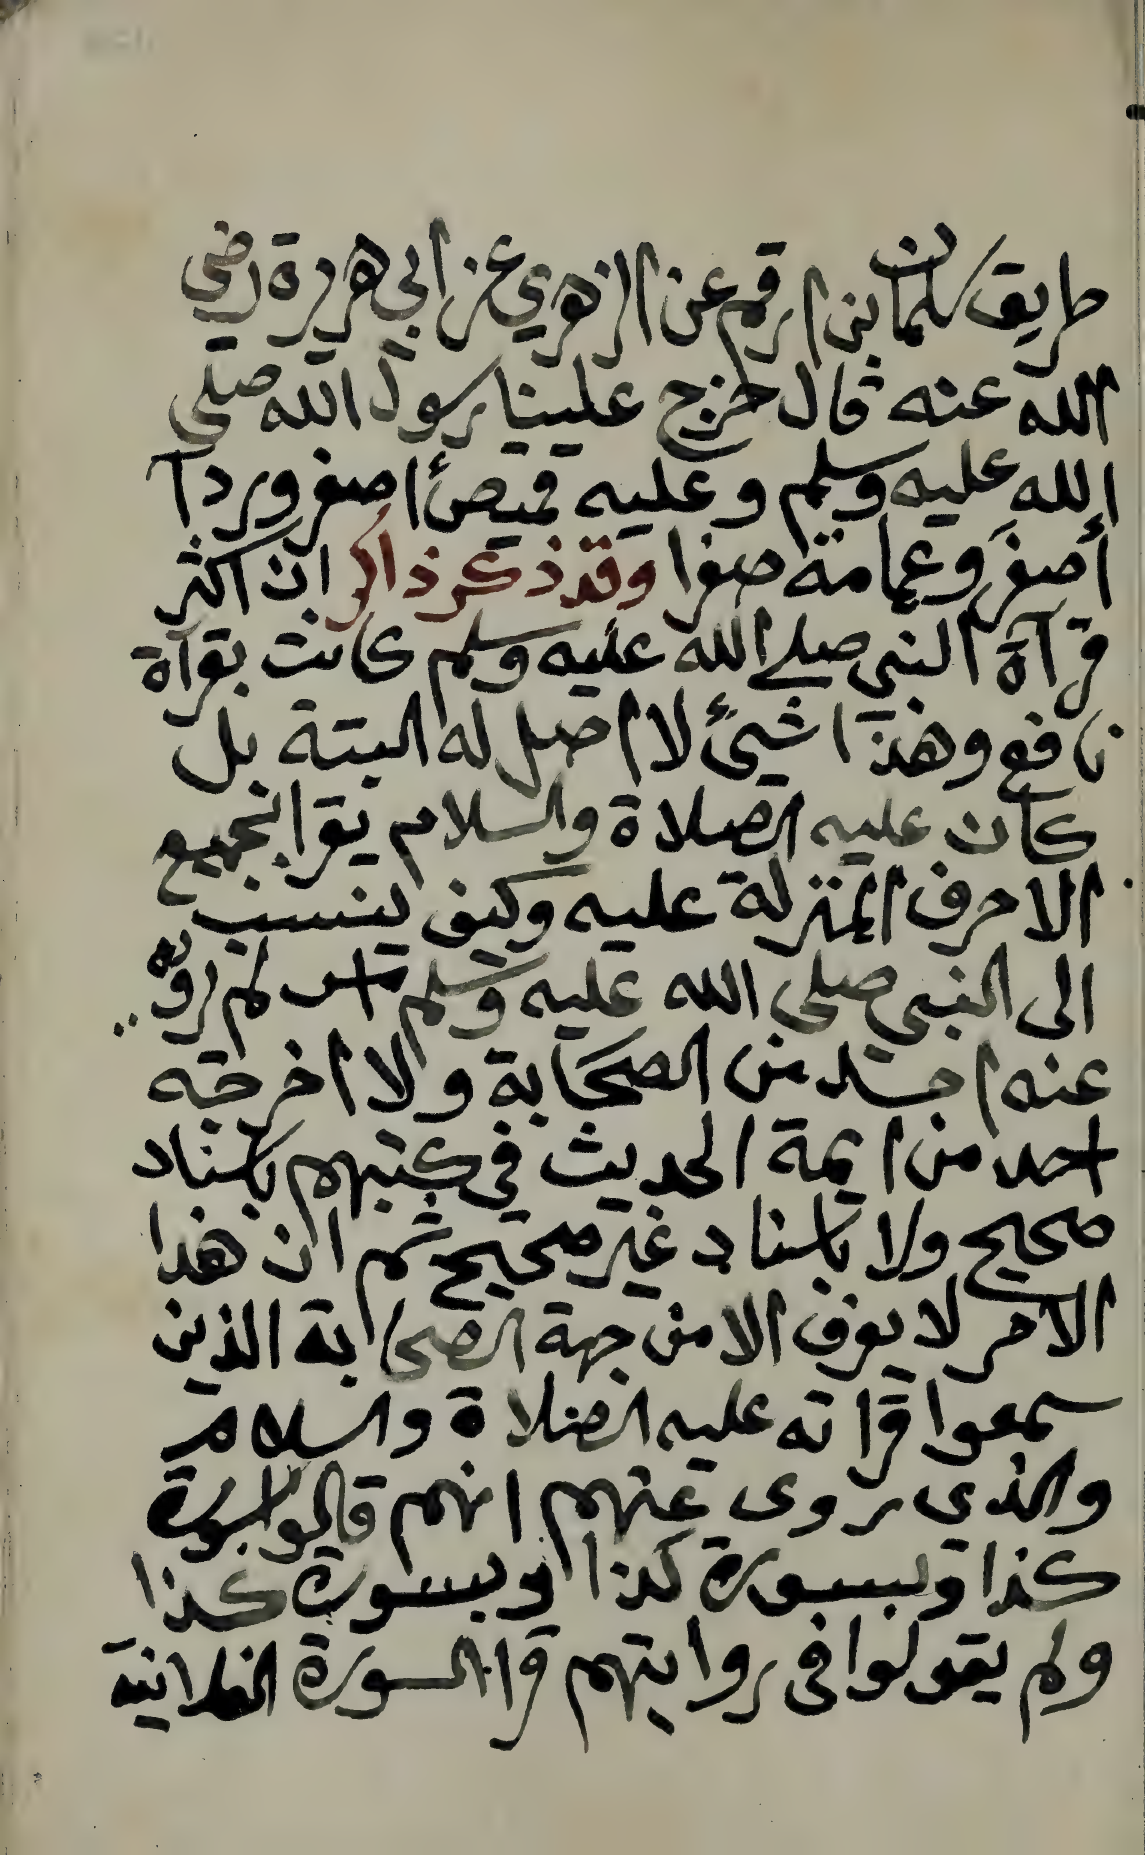 طريق سلمان بن ارقم عن الزهري عن ابي هريرة رضي
الله عنه قال خرج علينا رسول الله صلى
الله عليه وسلم وعليه قميصٌ اصفر وردآ
أصفر وعمامة صفرا وقد ذكر ذاكر ان اكثر
قرآة النبي صلى الله عليه وسلم كانت بقرآة
نافع وهذا شيئ لا اصل له البتة بل
كان عليه الصلاة والسلام يقرا بجميع
الاحرف المنزلة عليه وكيف ينسب
الى النبي صلى الله عليه وسلم لم يروه
عنه احد من الصحابة ولا اخرجه
احد من ايمة الحديث في كتبهم باسناد
صحيح ولا باسناد غير صحيح ثم ان هذا
الامر لا يعرف الا من جهة الصحابة الذين
سمعوا قراته عليه الصلاة والسلام
والذي يروى عنهم انهم قالوا بسورة
كذا وبسورة كذا وبسورة كذا
ولم يقولوا في روايتهم قرا السورة الفلانية